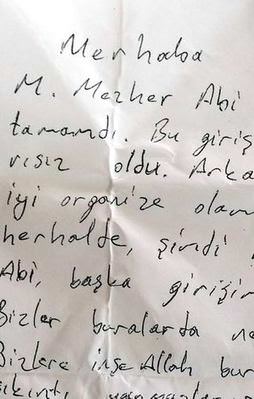 Merhaba
M. Mezher Abi
tamamdı. Bu giriş
rısız oldu. Arka
iyi organize olam
herhalde, şimdi
Abi, başka girişim
Bizler buralarda ne
Bizlere inşeAllah bur
sıkıntı